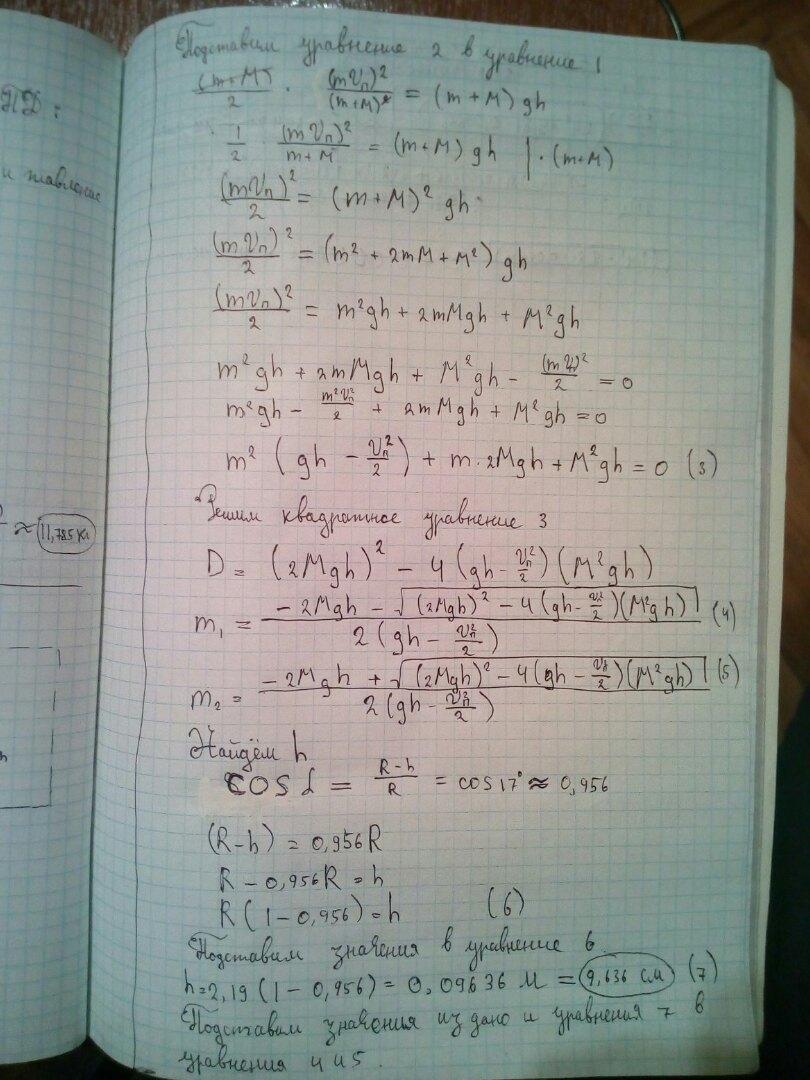 ПД:
и давление
≈ 11,785 Кл
Подставим уравнение 2 в уравнение 1
(m+M)/2 · (mVп)²/(m+M)² = (m+M) gh
1/2 (mVп)²/(m+M) = (m+M) gh | · (m+M)
(mVп)²/2 = (m+M)² gh
(mVп)²/2 = (m² + 2mM + M²) gh
(mVп)²/2 = m²gh + 2mMgh + M²gh
m²gh + 2mMgh + M²gh - (mVп)²/2 = 0
m²gh - m²Vп²/2 + 2mMgh + M²gh = 0
m² (gh - Vп²/2) + m·2Mgh + M²gh = 0 (3)
Решим квадратное уравнение 3
D = (2Mgh)² - 4 (gh - Vп²/2)(M²gh)
m₁ = (-2Mgh - √((2Mgh)² - 4(gh - Vп²/2)(M²gh)))/(2(gh - Vп²/2)) (4)
m₂ = (-2Mgh + √((2Mgh)² - 4(gh - Vп²/2)(M²gh)))/(2(gh - Vп²/2)) (5)
Найдём h
cos α = (R-h)/R = cos 17° ≈ 0,956
(R-h) = 0,956R
R - 0,956R = h
R(1 - 0,956) = h (6)
Подставим значения в уравнение 6
h = 2,19 (1 - 0,956) = 0,09636 м = 9,636 см (7)
Подставим значения из дано и уравнения 7 в
уравнения 4 и 5.